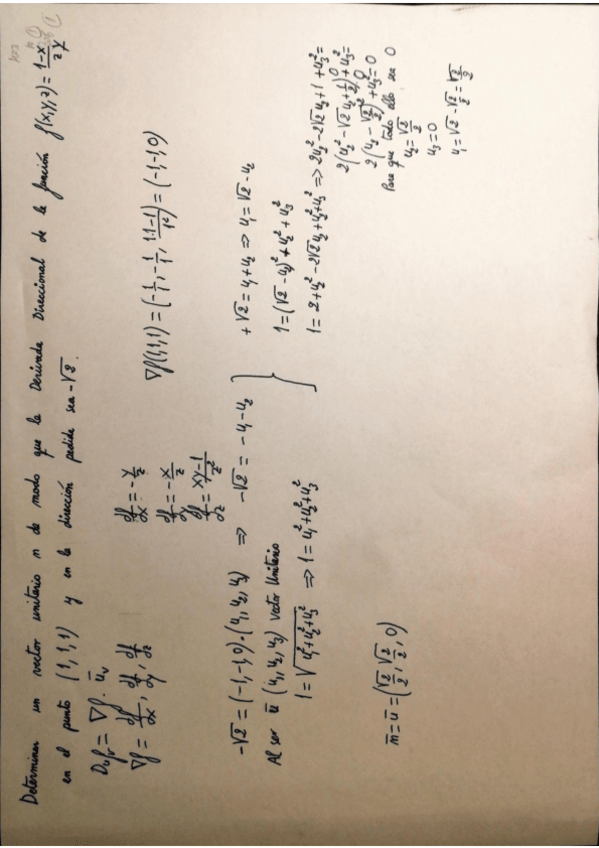 Determinar un vector unitario n de modo que la Derivada Direccional de la función f(x,y,z) = 1-xy/z
en el punto (1,1,1) y en la dirección pedida sea -√2.
Duf = ∇f · ūv
∇f = df/dx, df/dy, df/dz
df/dx = -y/z
df/dy = -x/z
df/dz = xy-1/z²
∇f(1,1,1) = (-1/1, -1/1, 1·1-1/1²) = (-1,-1,0)
-√2 = (-1,-1,0)·(u₁,u₂,u₃) ⇒ -√2 = -u₁-u₂
+√2 = u₁+u₂ ⇒ u₁ = √2-u₂
Al ser ū (u₁,u₂,u₃) vector Unitario
1 = √u₁²+u₂²+u₃² ⇒ 1 = u₁²+u₂²+u₃²
1 = (√2-u₂)²+u₂²+u₃²
1 = 2+u₂²-2√2u₂+u₂²+u₃² ⇒ 2u₂²-2√2u₂+1+u₃²=
2(u₂²-√2u₂+1/2)+u₃²=
2(u₂-√2/2)²+u₃²=0
Para que todo ello sea 0
u₂ = √2/2
u₃ = 0
u₁ = √2-√2/2 = √2/2
n̄ = ū = (√2/2, √2/2, 0)